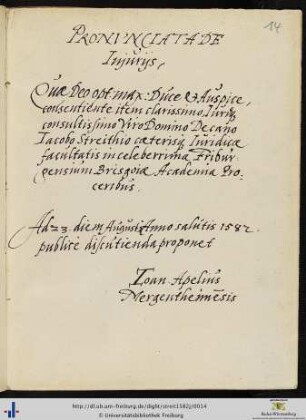 14
PRONVNCIATA DE
Injurijs,
Quæ Deo opt: max: Duce & Auspice,
consentiente item clarissimo Juris
consultissimo Viro Domino Decano
Jacobo Streithio cæterisq; Juridicæ
facultatis in celeberrima Fribur
gensium Brisgoiæ Academia Pro-
ceribus.
Ad 23 diem Augusti Anno salutis 1582.
publicè discutienda proponet
Ioan: Apelius
Mergentheimēsis
http://dl.ub.uni-freiburg.de/diglit/streit1582g/0014
© Universitätsbibliothek Freiburg